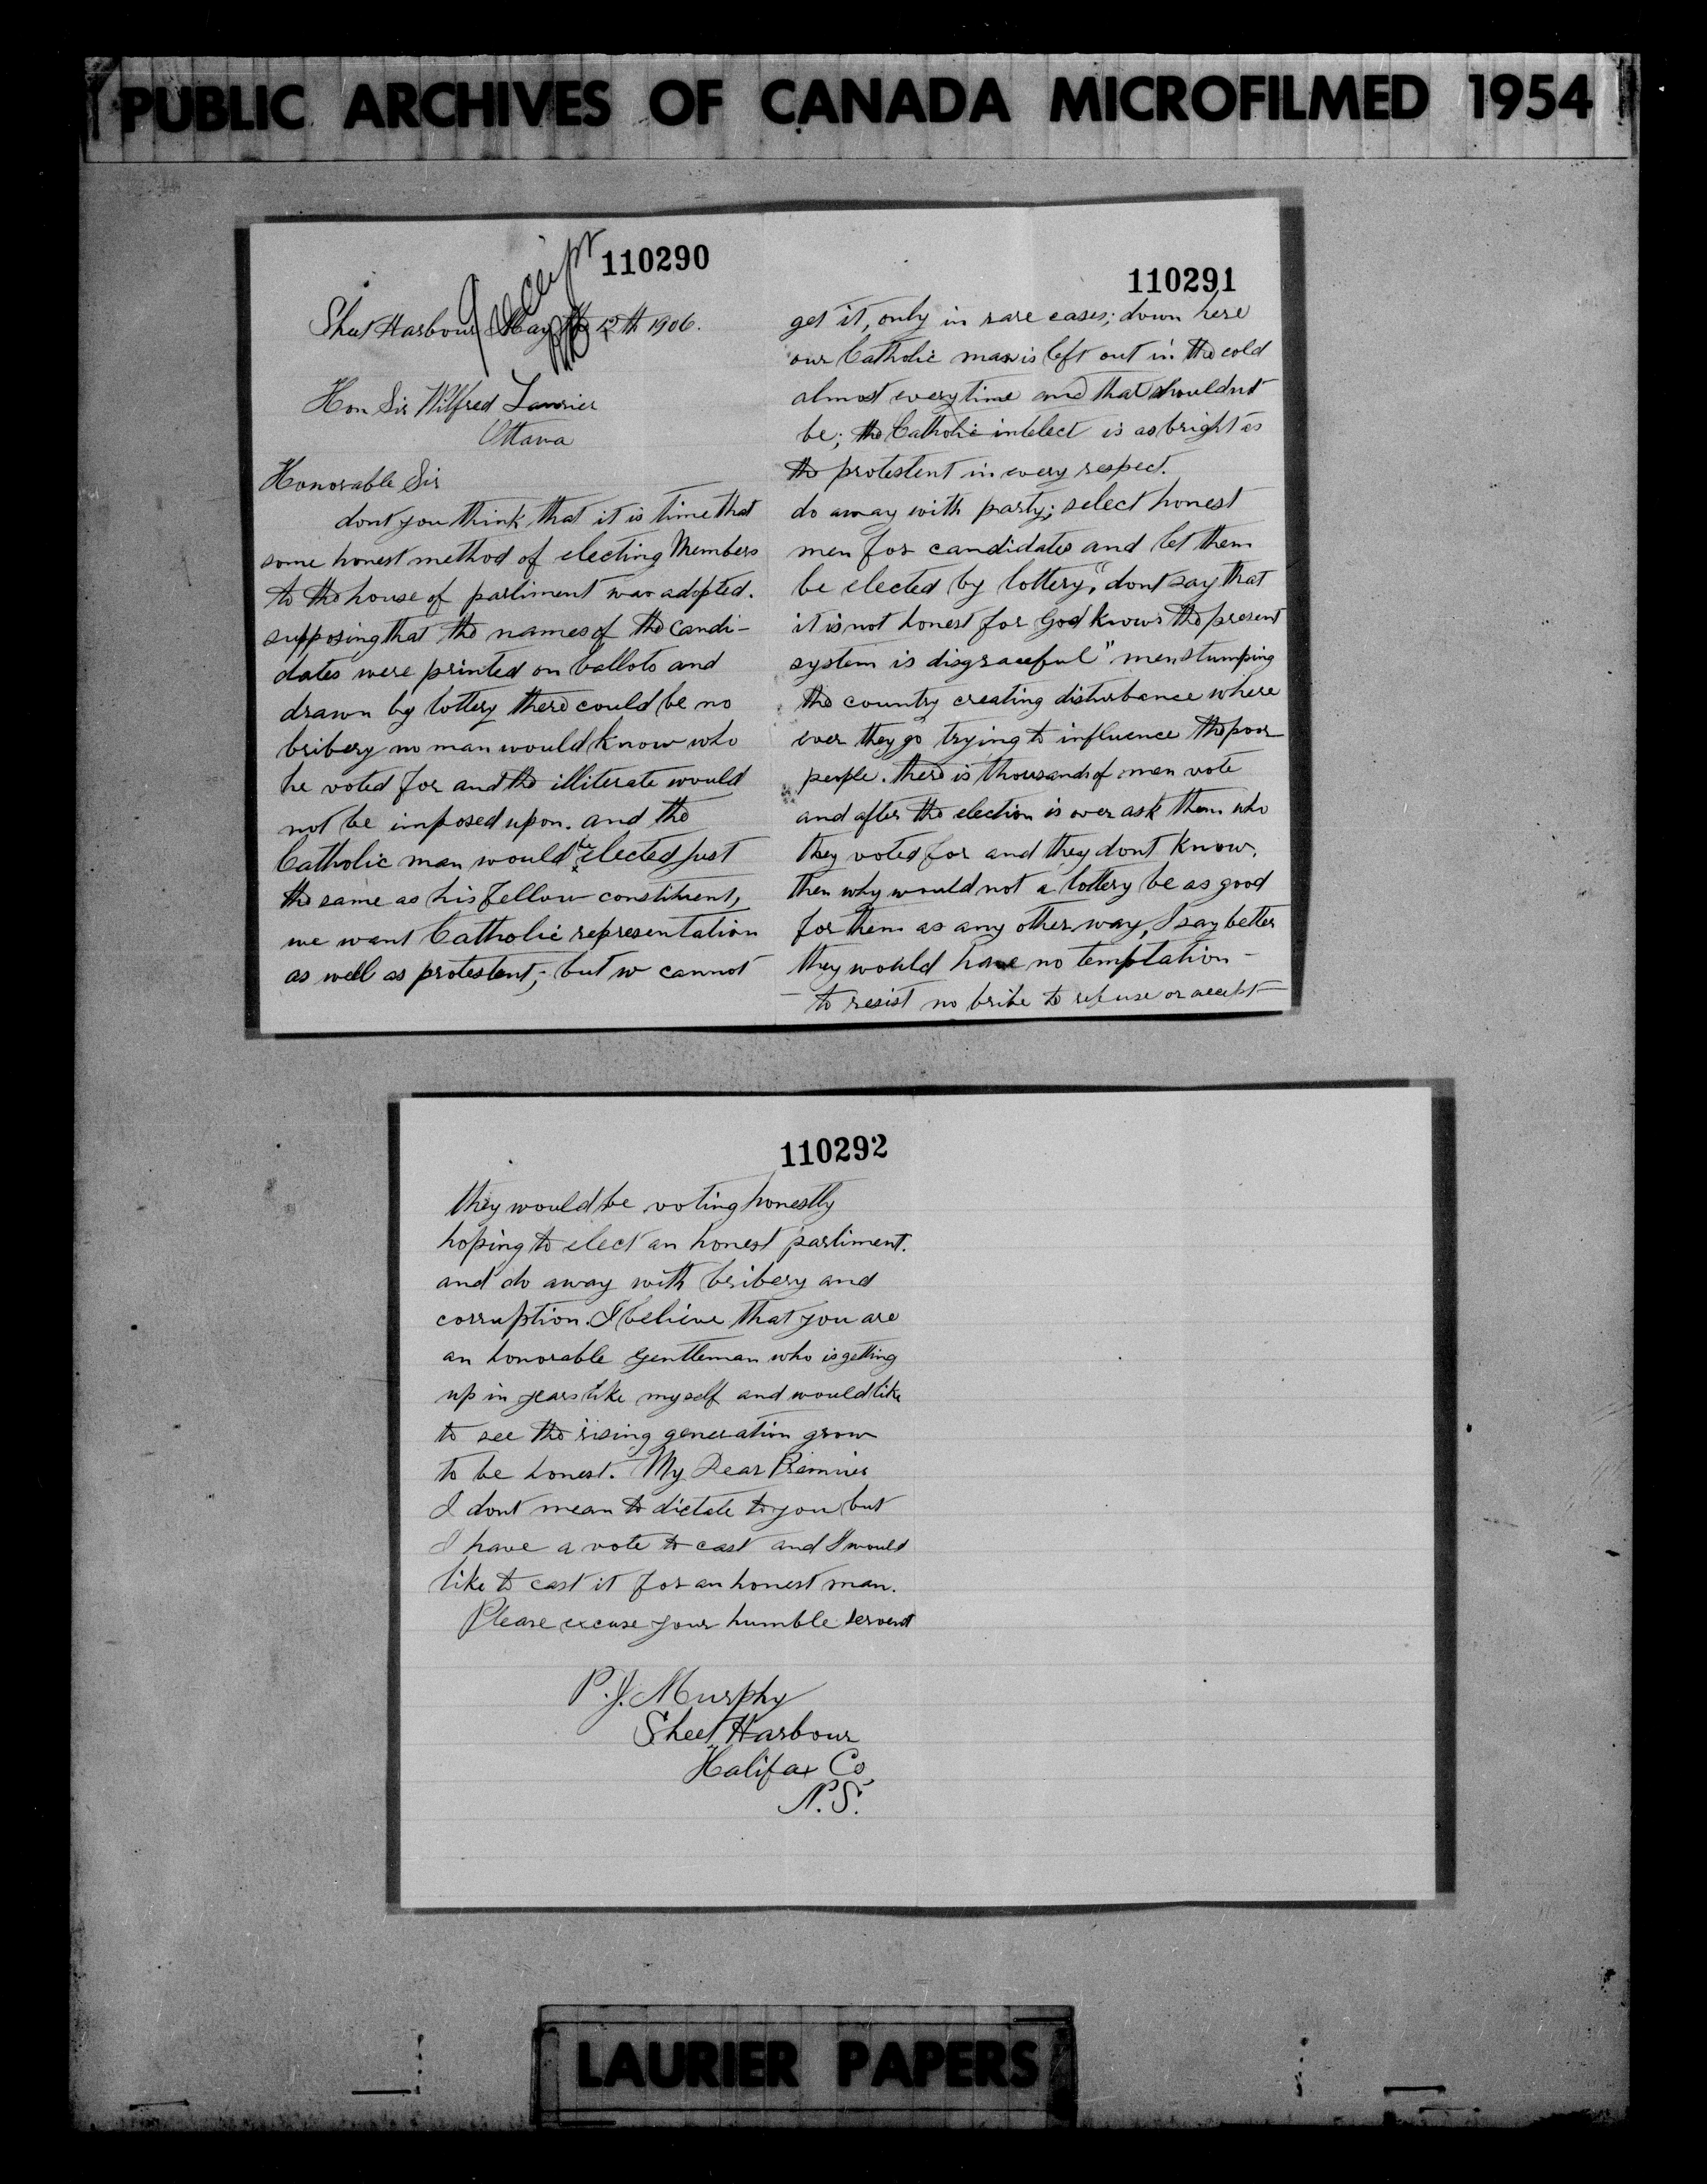 PUBLIC ARCHIVES OF CANADA MICROFILMED 1954
110290
Receipt
Sheet Harbour May the 12th 1906.
Hon Sir Wilfred Laurier
Ottawa
Honorable Sir
dont you think that it is time that
some honest method of electing Members
to the house of parliment was adopted.
supposing that the names of the candi-
dates were printed on ballots and
drawn by lottery there could be no
bribery no man would know who
he voted for and the illiterate would
not be imposed upon. and the
Catholic man would be elected just
the same as his fellow constituent,
we want Catholic representation
as well as protestent; but w cannot
110291
get it, only in rare cases; down here
our Catholic man is left out in the cold
almost everytime and that shouldnt
be; the Catholic intelect is as bright as
the protestent in every respect.
do away with party; select honest
men for candidates and let them
be elected by lottery, "dont say that
it is not honest for God knows the present
system is disgraceful" men stumping
the country creating disturbance where
ever they go trying to influence the poor
people. there is thousands of men vote
and after the election is over ask them who
they voted for and they dont know.
then why would not a lottery be as good
for them as any other way, I say better
they would have no temptation -
- to resist no bribe to refuse or accept -
110292
they would be voting honestly
hoping to elect an honest parliment.
and do away with bribery and
corruption. I believe that you are
an honorable gentleman who is getting
up in years like myself and would like
to see the rising generation grow
to be honest. My Dear Premier
I dont mean to dictate to you but
I have a vote to cast and I would
like to cast it for an honest man.
Please excuse your humble servent
P.J. Murphy
Sheet Harbour
Halifax Co,
N.S.
LAURIER PAPERS